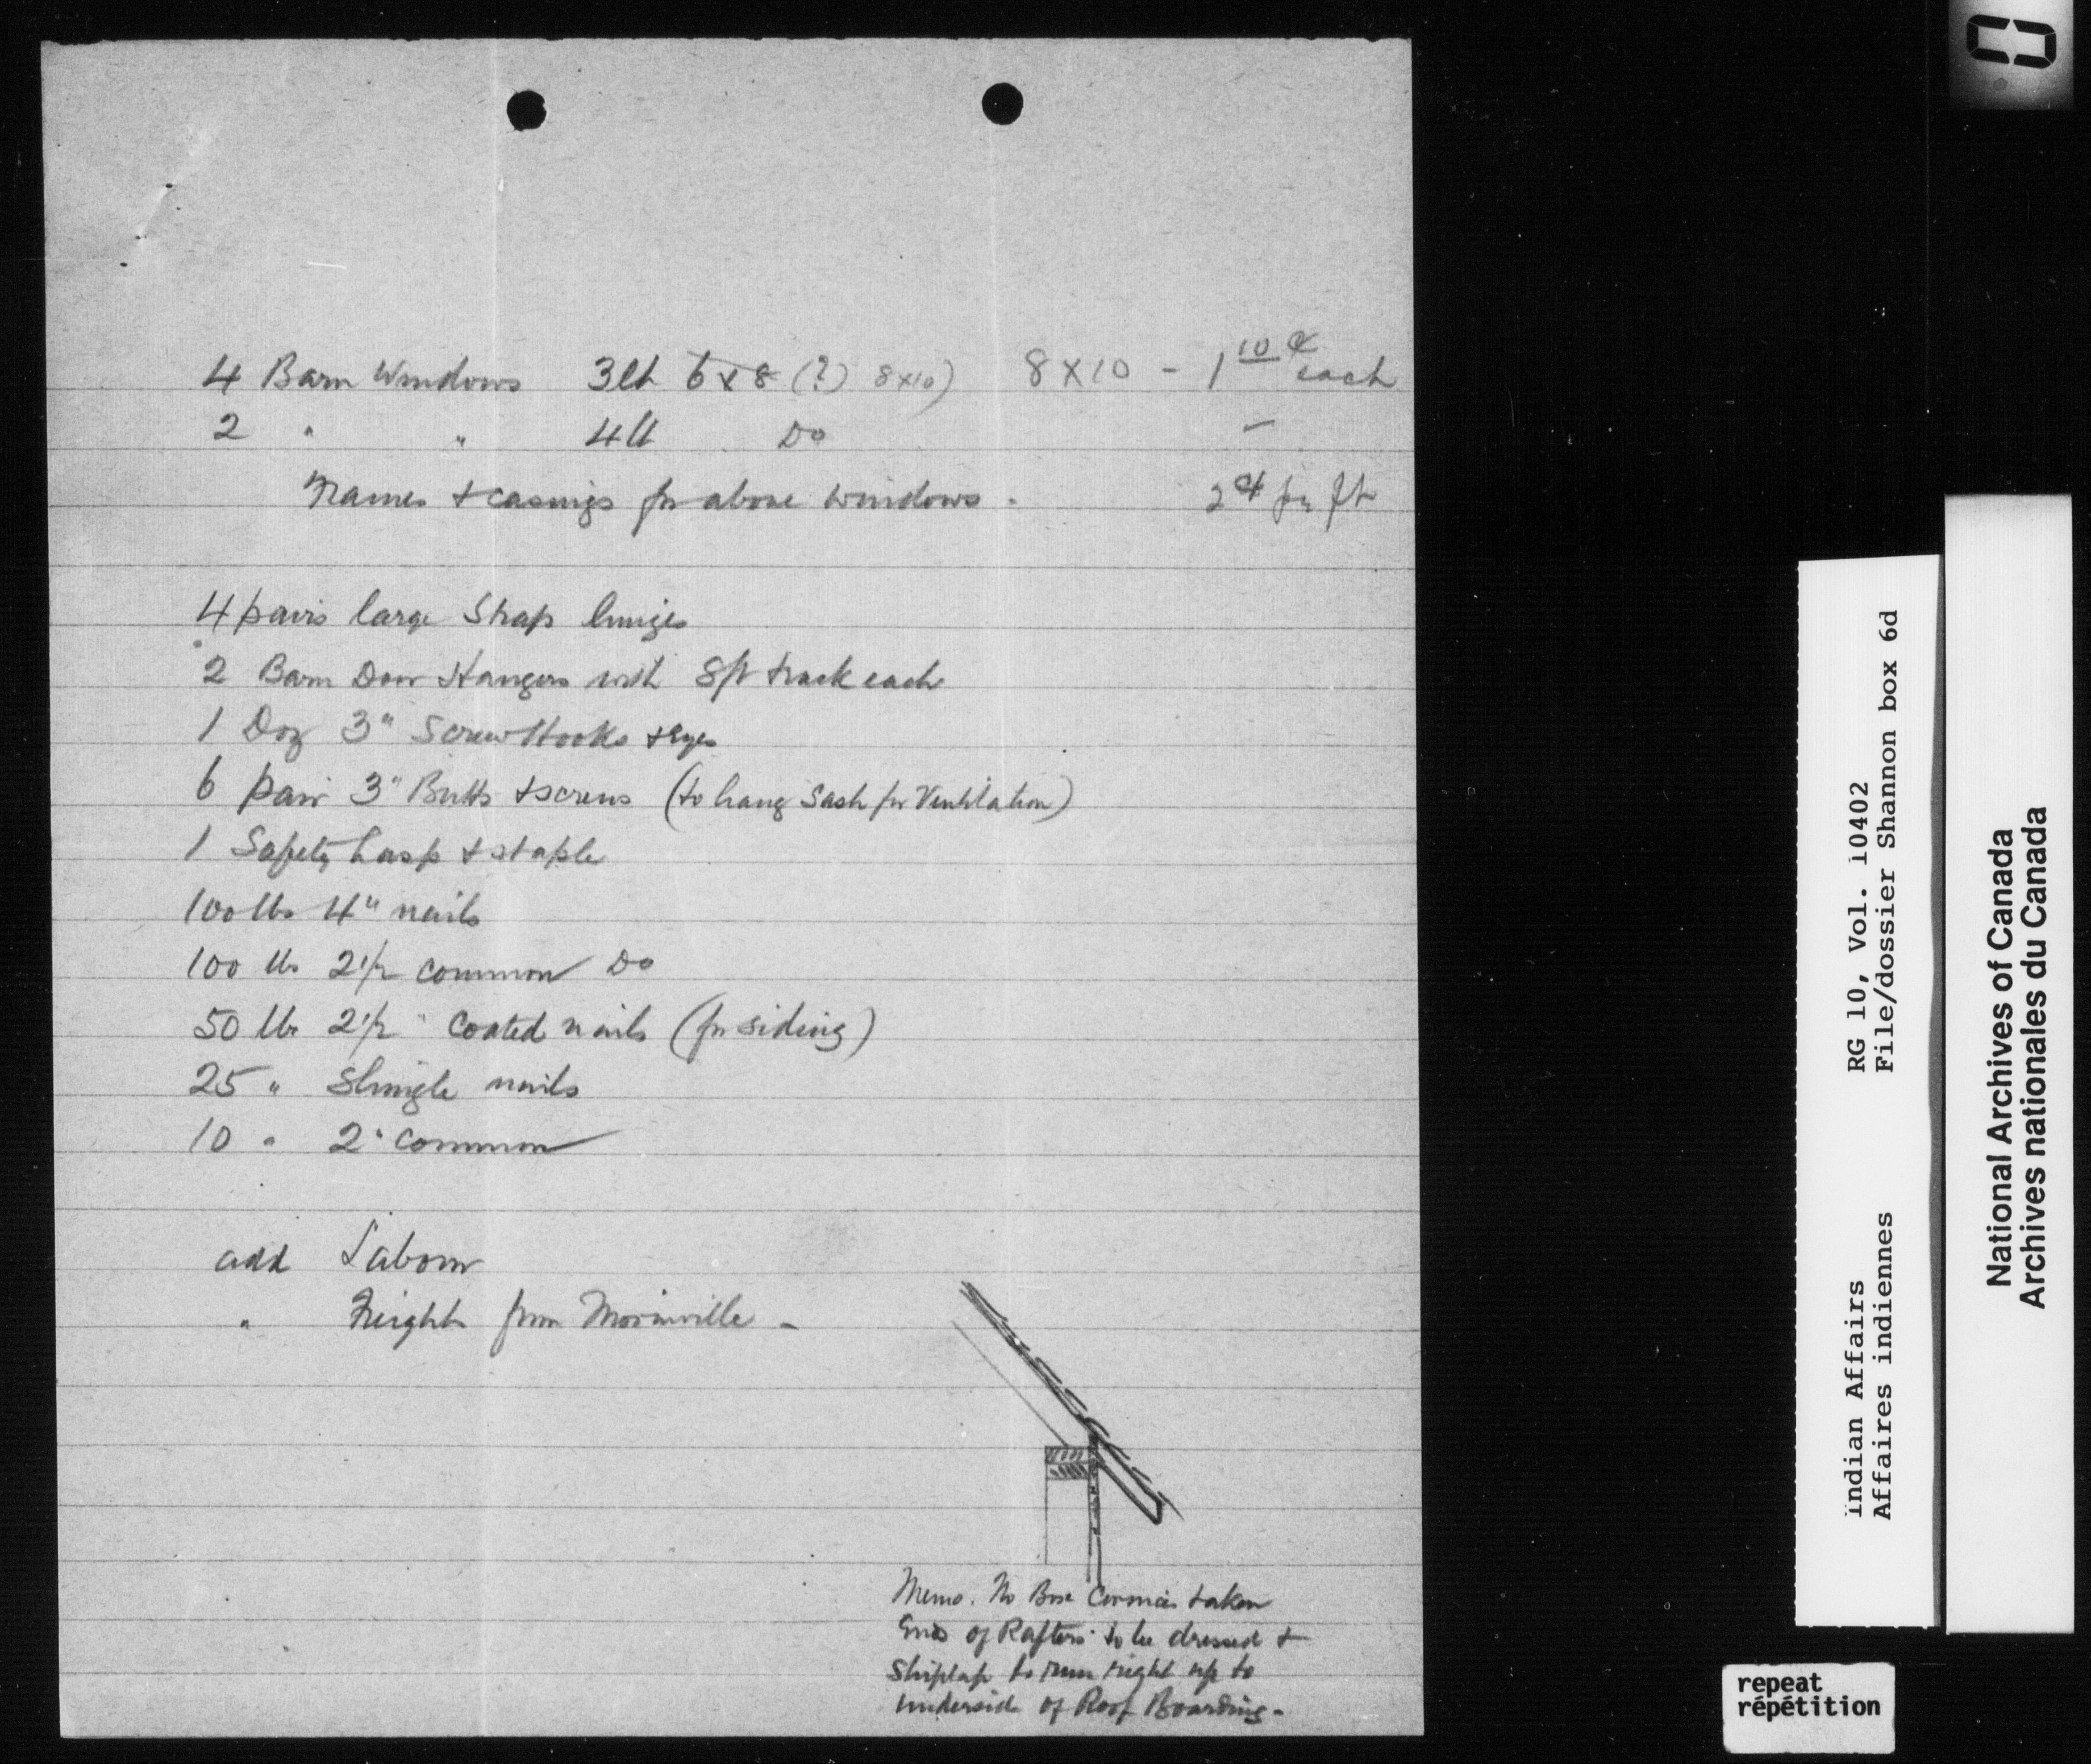 4 Barn Windows 3lt 6x8 (?) 8x10) 8x10 - 1 10 ¢ each
2 " " 4lt Do -
Frames & casings for above windows. 2 ¢ per ft
4 pairs large Strap hinges
2 Barn Door Hangers with 8ft track each
1 Doz 3" Screw Hooks & Eyes
6 pair 3" Butts & screws (to hang Sash for Ventilation)
1 Safety hasp & staple
100 lbs 4" nails
100 lbs 2 1/2 common Do
50 lbs 2 1/2 " Coated nails (for siding)
25 " Shingle nails
10 " 2" Common
add Labour
" Freight from Morinville -
Memo. No Box Cornices taken
Ends of Rafters to be dressed &
Shiplap to run right up to
underside of Roof Boarding-
Indian Affairs RG 10, Vol. 10402
Affaires indiennes File/dossier Shannon box 6d
National Archives of Canada
Archives nationales du Canada
repeat
répétition